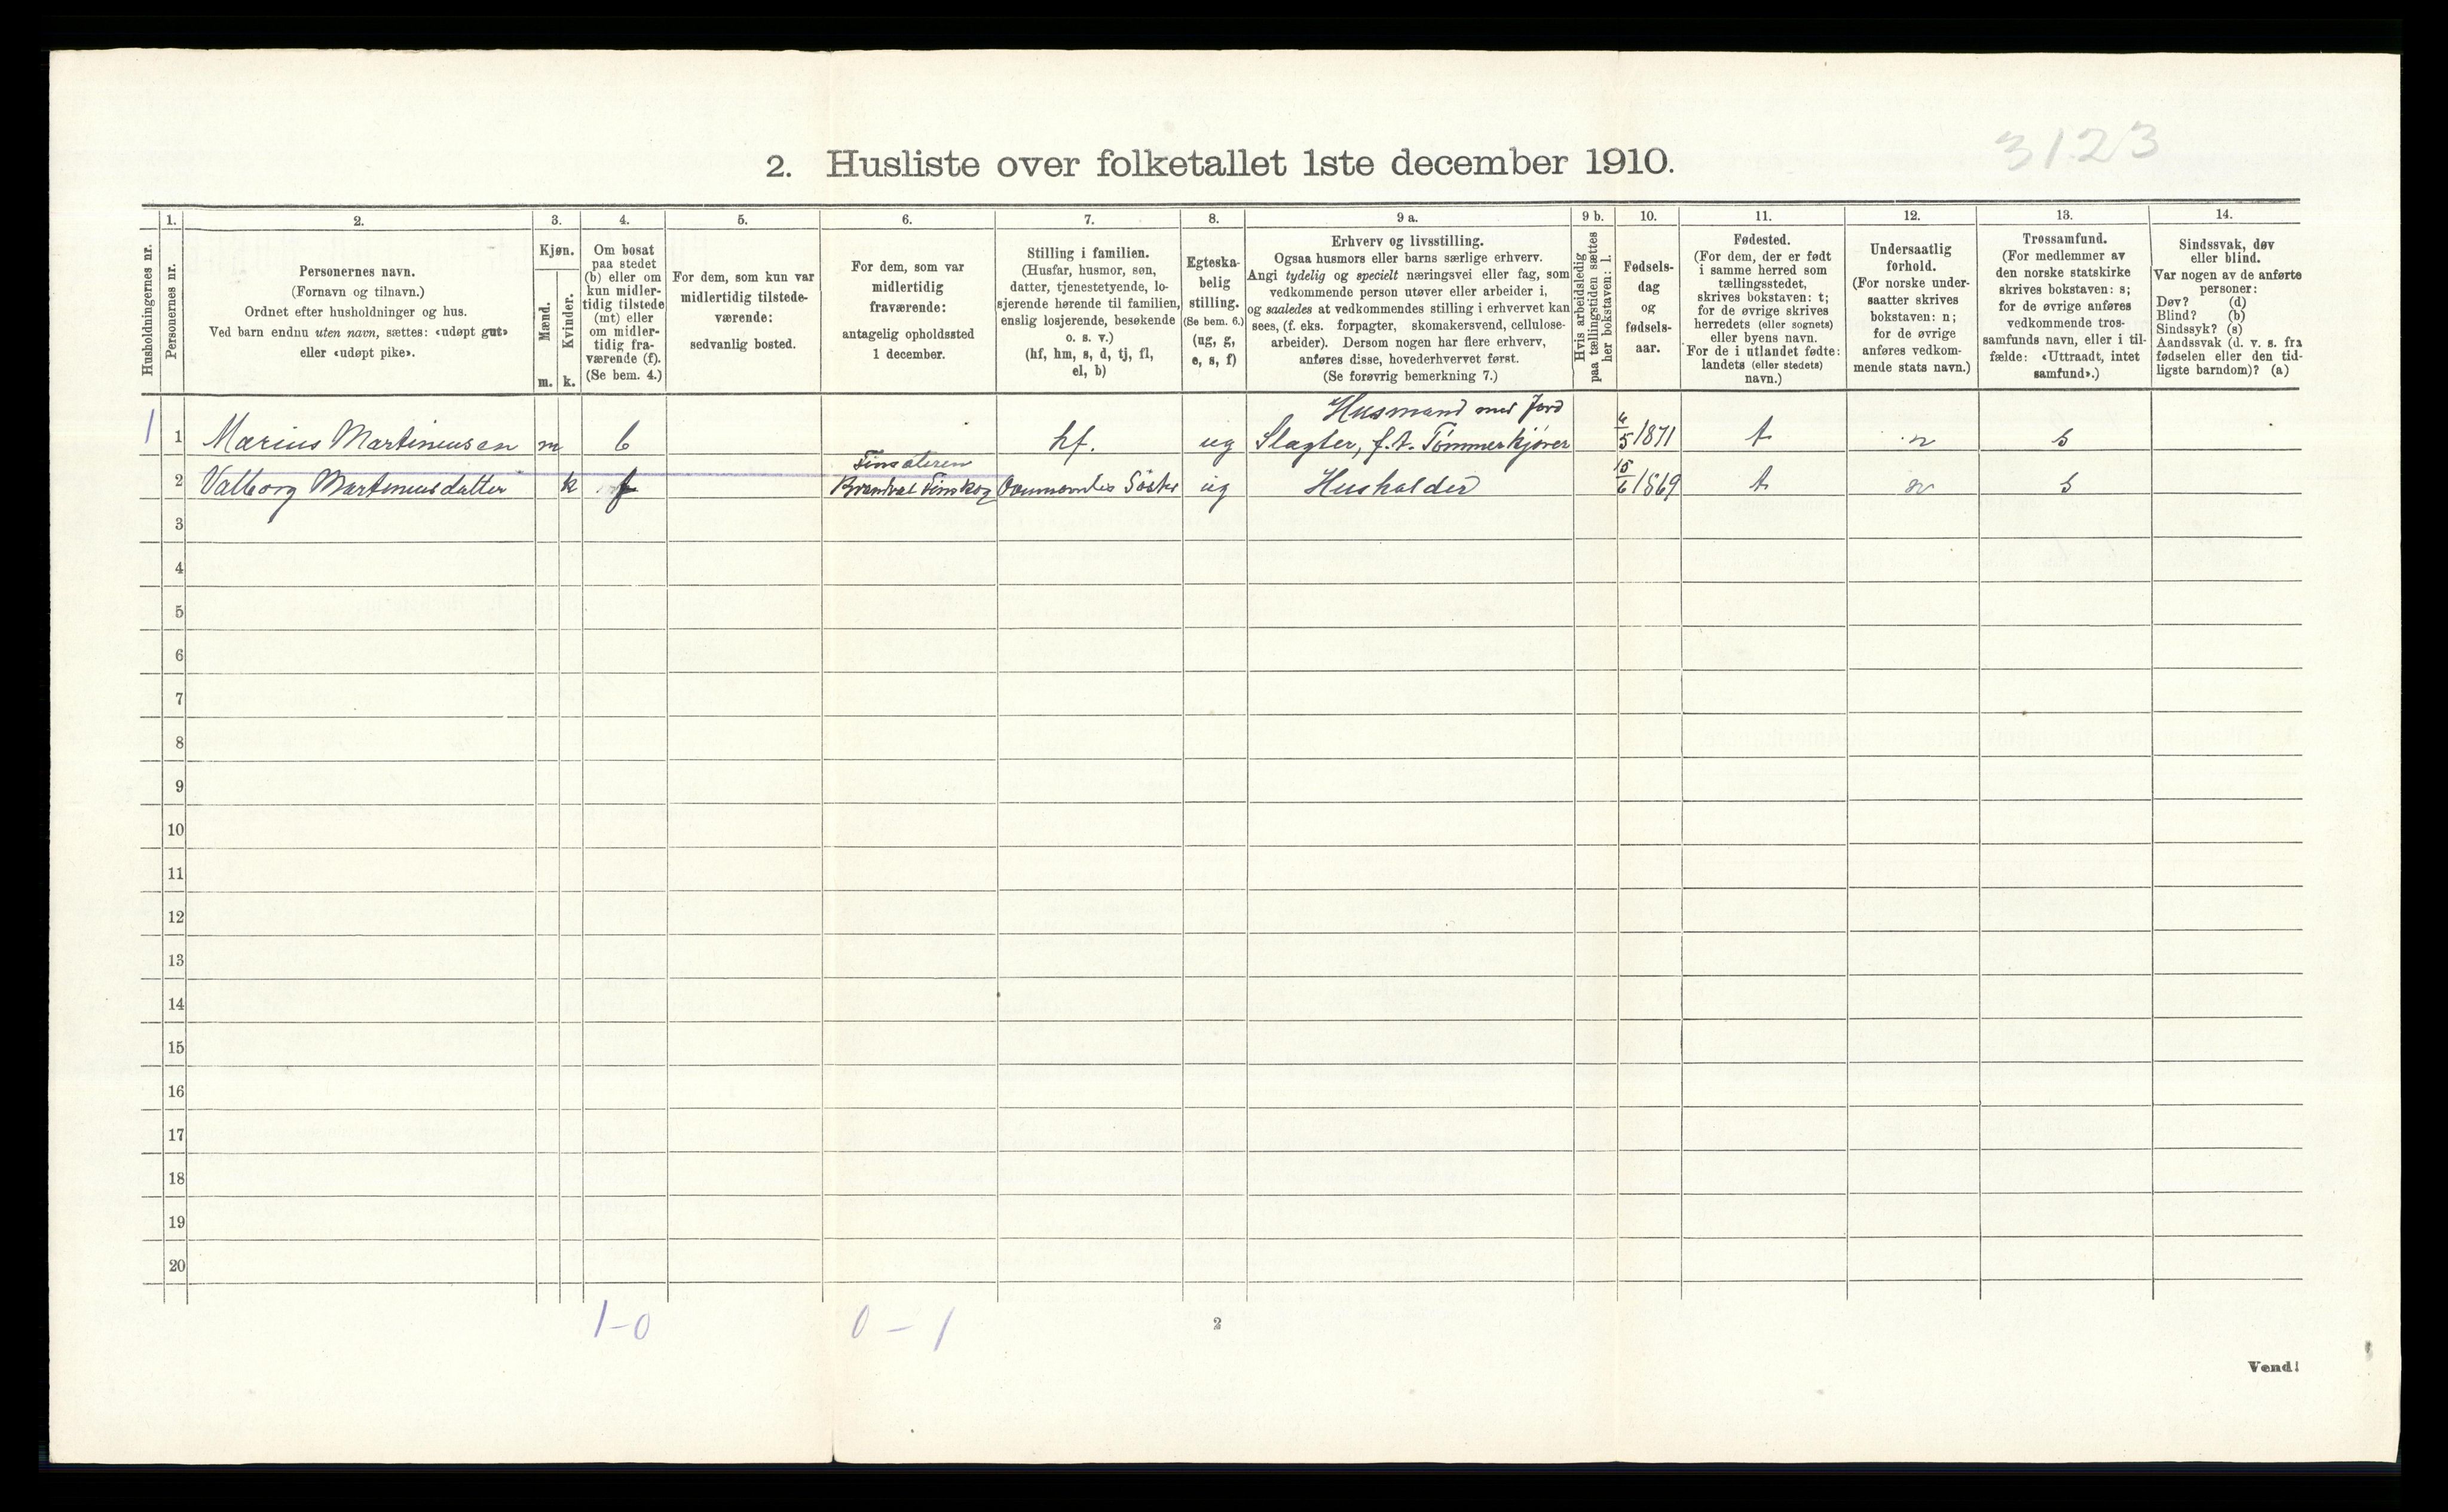 3123
2. Husliste over folketallet 1ste december 1910.
Husholdningernes nr.
1.
Personernes nr.
2.
Personernes navn.
(Fornavn og tilnavn.)
Ordnet efter husholdninger og hus.
Ved barn endnu uten navn, sættes: «udøpt gut»
eller «udøpt pike».
3.
Kjøn.
Mænd.
Kvinder.
m. k.
4.
Om bosat
paa stedet
(b) eller om
kun midler-
tidig tilstede
(mt) eller
om midler-
tidig fra-
værende (f).
(Se bem. 4.)
5.
For dem, som kun var
midlertidig tilstede-
værende:
sedvanlig bosted.
6.
For dem, som var
midlertidig
fraværende:
antagelig opholdssted
1 december.
7.
Stilling i familien.
(Husfar, husmor, søn,
datter, tjenestetyende, lo-
sjerende hørende til familien,
enslig losjerende, besøkende
o. s. v.)
(hf, hm, s, d, tj, fl,
el, b)
8.
Egteska-
belig
stilling.
(Se bem. 6.)
(ug, g,
e, s, f)
9 a.
Erhverv og livsstilling.
Ogsaa husmors eller barns særlige erhverv.
Angi tydelig og specielt næringsvei eller fag, som
vedkommende person utøver eller arbeider i,
og saaledes at vedkommendes stilling i erhvervet kan
sees, (f. eks. forpagter, skomakersvend, cellulose-
arbeider). Dersom nogen har flere erhverv,
anføres disse, hovederhvervet først.
(Se forøvrig bemerkning 7.)
9 b.
Hvis arbeidsledig
paa tællingstiden sættes
her bokstaven: l.
10.
Fødsels-
dag
og
fødsels-
aar.
11.
Fødested.
(For dem, der er født
i samme herred som
tællingsstedet,
skrives bokstaven: t;
for de øvrige skrives
herredets (eller sognets)
eller byens navn.
For de i utlandet fødte:
landets (eller stedets)
navn.)
12.
Undersaatlig
forhold.
(For norske under-
saatter skrives
bokstaven: n;
for de øvrige
anføres vedkom-
mende stats navn.)
13.
Trossamfund.
(For medlemmer av
den norske statskirke
skrives bokstaven: s;
for de øvrige anføres
vedkommende tros-
samfunds navn, eller i til-
fælde: «Uttraadt, intet
samfund».)
14.
Sindssvak, døv
eller blind.
Var nogen av de anførte
personer:
Døv? (d)
Blind? (b)
Sindssyk? (s)
Aandssvak (d. v. s. fra
fødselen eller den tid-
ligste barndom)? (a)
Husmand med Jord
1 1 Marius Martinusen m b hf. ug Slagter, f.t. Tømmerkjører 1871 t n s
2 Valborg Martinusdatter k f Brandval Finskog Søster ug Husholder 15/6 1869 t n s
3
4
5
6
7
8
9
10
11
12
13
14
15
16
17
18
19
20
1-0 0-1
2
Vend!